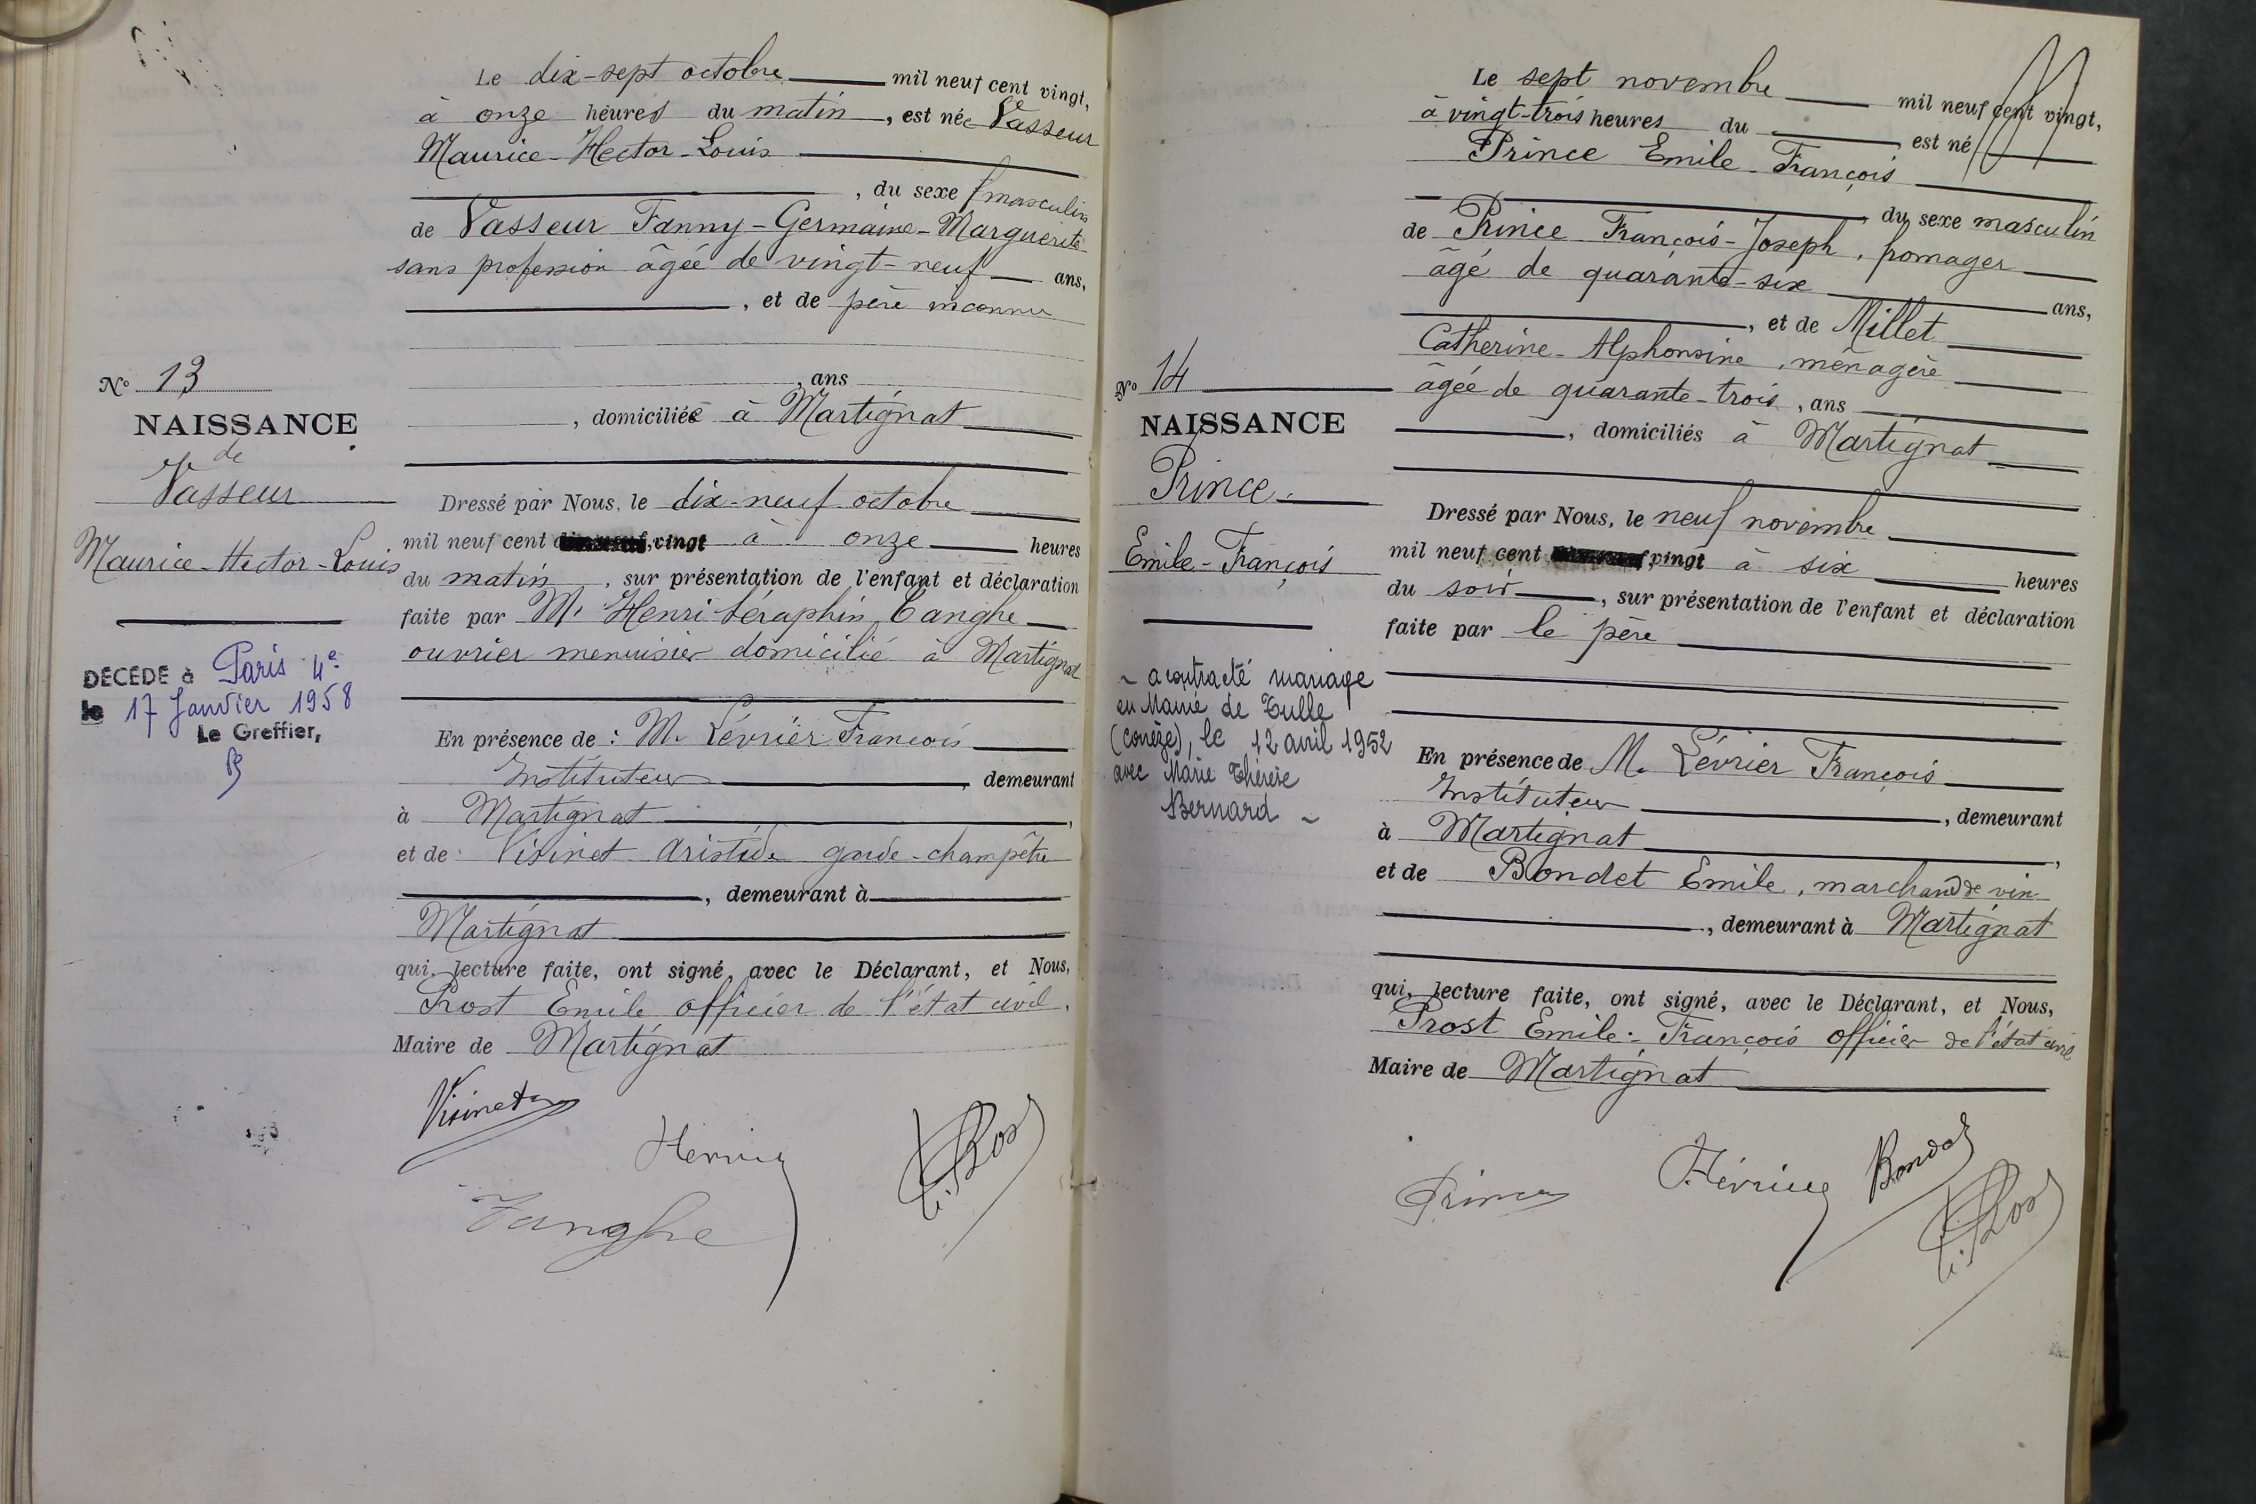 Le dix-sept octobre mil neuf cent vingt,
à onze heures du matin, est née Vasseur
Maurice-Hector-Louis
, du sexe masculin
de Vasseur Fanny-Germaine-Marguerite
sans profession âgée de vingt-neuf ans,
, et de père inconnu
, ans
, domiciliée à Martignat
Nº 13
NAISSANCE
de
Vasseur
Maurice-Hector-Louis
DÉCÉDÉ à Paris 4e
le 17 Janvier 1958
Le Greffier,
Dressé par Nous, le dix-neuf octobre
mil neuf cent vingt à onze heures
du matin, sur présentation de l'enfant et déclaration
faite par M. Henri Séraphin Tanghe
ouvrier menuisier domicilié à Martignat
En présence de : M. Lévrier François
Instituteur, demeurant
à Martignat,
et de Visinet Aristide garde-champêtre
, demeurant à
Martignat
qui, lecture faite, ont signé, avec le Déclarant, et Nous,
Prost Emile officier de l'état civil,
Maire de Martignat
Visinet
Tanghe
Le sept novembre mil neuf cent vingt,
à vingt-trois heures du , est né
Prince Emile-François
, du sexe masculin
de Prince François-Joseph, fromager
âgé de quarante-six ans,
, et de Millet
Catherine-Alphonsine, ménagère
âgée de quarante-trois, ans
, domiciliés à Martignat
Nº 14
NAISSANCE
Prince
Emile-François
~ a contracté mariage
en Mairie de Tulle
(corrèze), le 12 avril 1952
avec Marie Thérèse
Bernard ~
Dressé par Nous, le neuf novembre
mil neuf cent vingt à six heures
du soir, sur présentation de l'enfant et déclaration
faite par le père
En présence de M. Lévrier François
Instituteur, demeurant
à Martignat,
et de Bondet Emile, marchand de vin
, demeurant à Martignat
qui, lecture faite, ont signé, avec le Déclarant, et Nous,
Prost Emile-François officier de l'état civil
Maire de Martignat
Prince